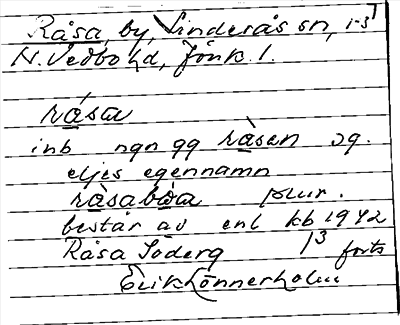 Råsa, by, Linderås sn,
N. Vedbo hd, Jönk. l.
råsa
inb ngn gg råsen sg.
eljes egennamn
råsaböa plur.
består av enl kb 1942
Råsa Söderg 1³ forts
Erik Lönnerholm